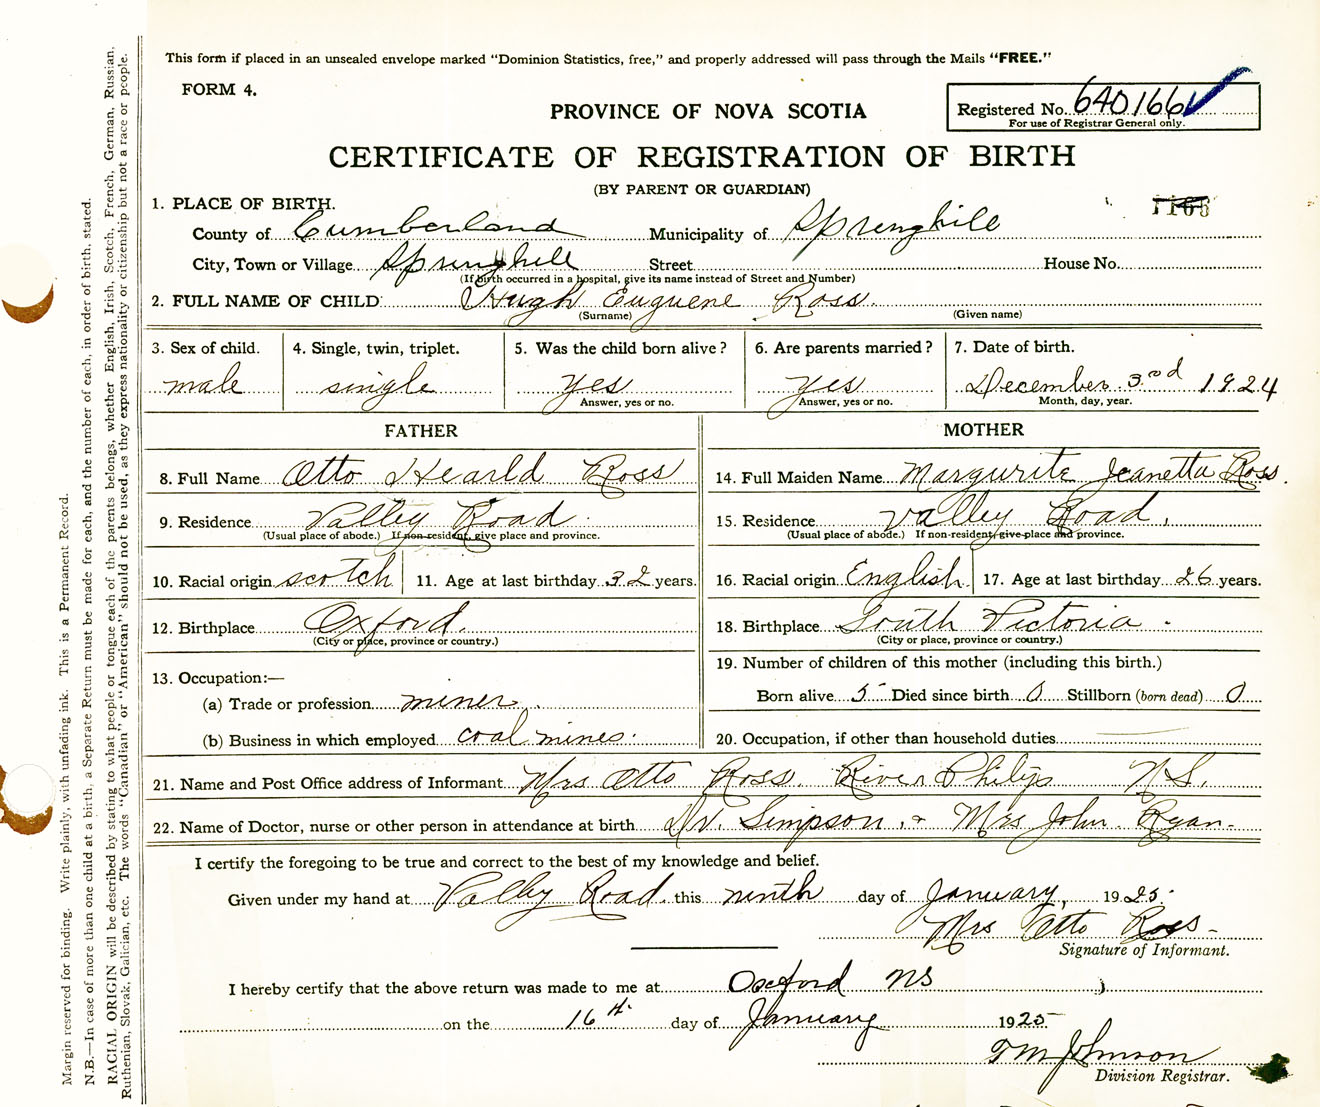 This form if placed in an unsealed envelope marked “Dominion Statistics, free,” and properly addressed will pass through the Mails “FREE.”
FORM 4.
Registered No. 640166
For use of Registrar General only.
PROVINCE OF NOVA SCOTIA
CERTIFICATE OF REGISTRATION OF BIRTH
(BY PARENT OR GUARDIAN)
1. PLACE OF BIRTH.
County of Cumberland Municipality of Springhill
City, Town or Village Springhill Street House No.
(If birth occurred in a hospital, give its name instead of Street and Number)
2. FULL NAME OF CHILD Hugh Euguene Ross.
(Surname) (Given name)
3. Sex of child. 4. Single, twin, triplet. 5. Was the child born alive? 6. Are parents married? 7. Date of birth.
male single yes yes December 3rd 1924
Answer, yes or no. Answer, yes or no. Month, day, year.
FATHER MOTHER
8. Full Name Otto Hearld Ross 14. Full Maiden Name Margurite Jeanetta Ross.
9. Residence Valley Road. 15. Residence Valley Road.
(Usual place of abode.) If non-resident, give place and province. (Usual place of abode.) If non-resident, give place and province.
10. Racial origin scotch 11. Age at last birthday 32 years. 16. Racial origin English. 17. Age at last birthday 26 years.
12. Birthplace Oxford. 18. Birthplace South Victoria.
(City or place, province or country.) (City or place, province or country.)
13. Occupation:— 19. Number of children of this mother (including this birth.)
(a) Trade or profession miner. Born alive 5 Died since birth 0 Stillborn (born dead) 0
(b) Business in which employed coal mines. 20. Occupation, if other than household duties
21. Name and Post Office address of Informant Mrs Otto Ross. River Philip N.S.
22. Name of Doctor, nurse or other person in attendance at birth Dr. Simpson. + Mrs John Ryan.
I certify the foregoing to be true and correct to the best of my knowledge and belief.
Given under my hand at Valley Road. this ninth day of January, 1925.
Mrs Otto Ross
Signature of Informant.
I hereby certify that the above return was made to me at Oxford NS
on the 16th day of January 1925
TM Johnson
Division Registrar.
Margin reserved for binding. Write plainly, with unfading ink. This is a Permanent Record.
N.B.—In case of more than one child at a birth, a Separate Return must be made for each, and the number of each, in order of birth. stated.
RACIAL ORIGIN will be described by stating to what people or tongue each of the parents belongs, whether English, Irish, Scotch, French, German, Russian,
Ruthenian, Slovak, Galician, etc. The words “Canadian” or “American” should not be used, as they express nationality or citizenship but not a race or people.